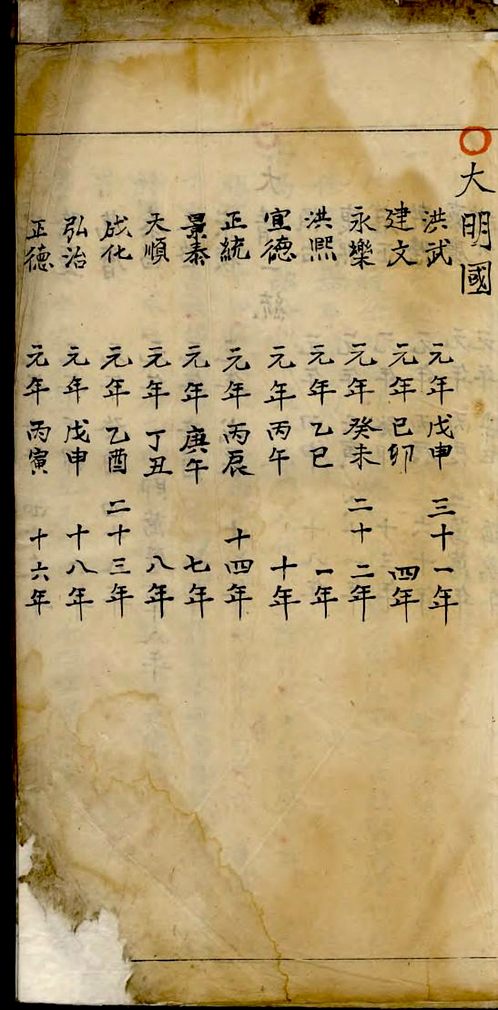 大明國
洪武 元年 戊申 三十一年
建文 元年 己卯 四年
永樂 元年 癸未 二十二年
洪熈 元年 乙巳 一年
宣德 元年 丙午 十年
正統 元年 丙辰 十四年
景泰 元年 庚午 七年
天順 元年 丁丑 八年
成化 元年 乙酉 二十三年
弘治 元年 戊申 十八年
正德 元年 丙寅 十六年